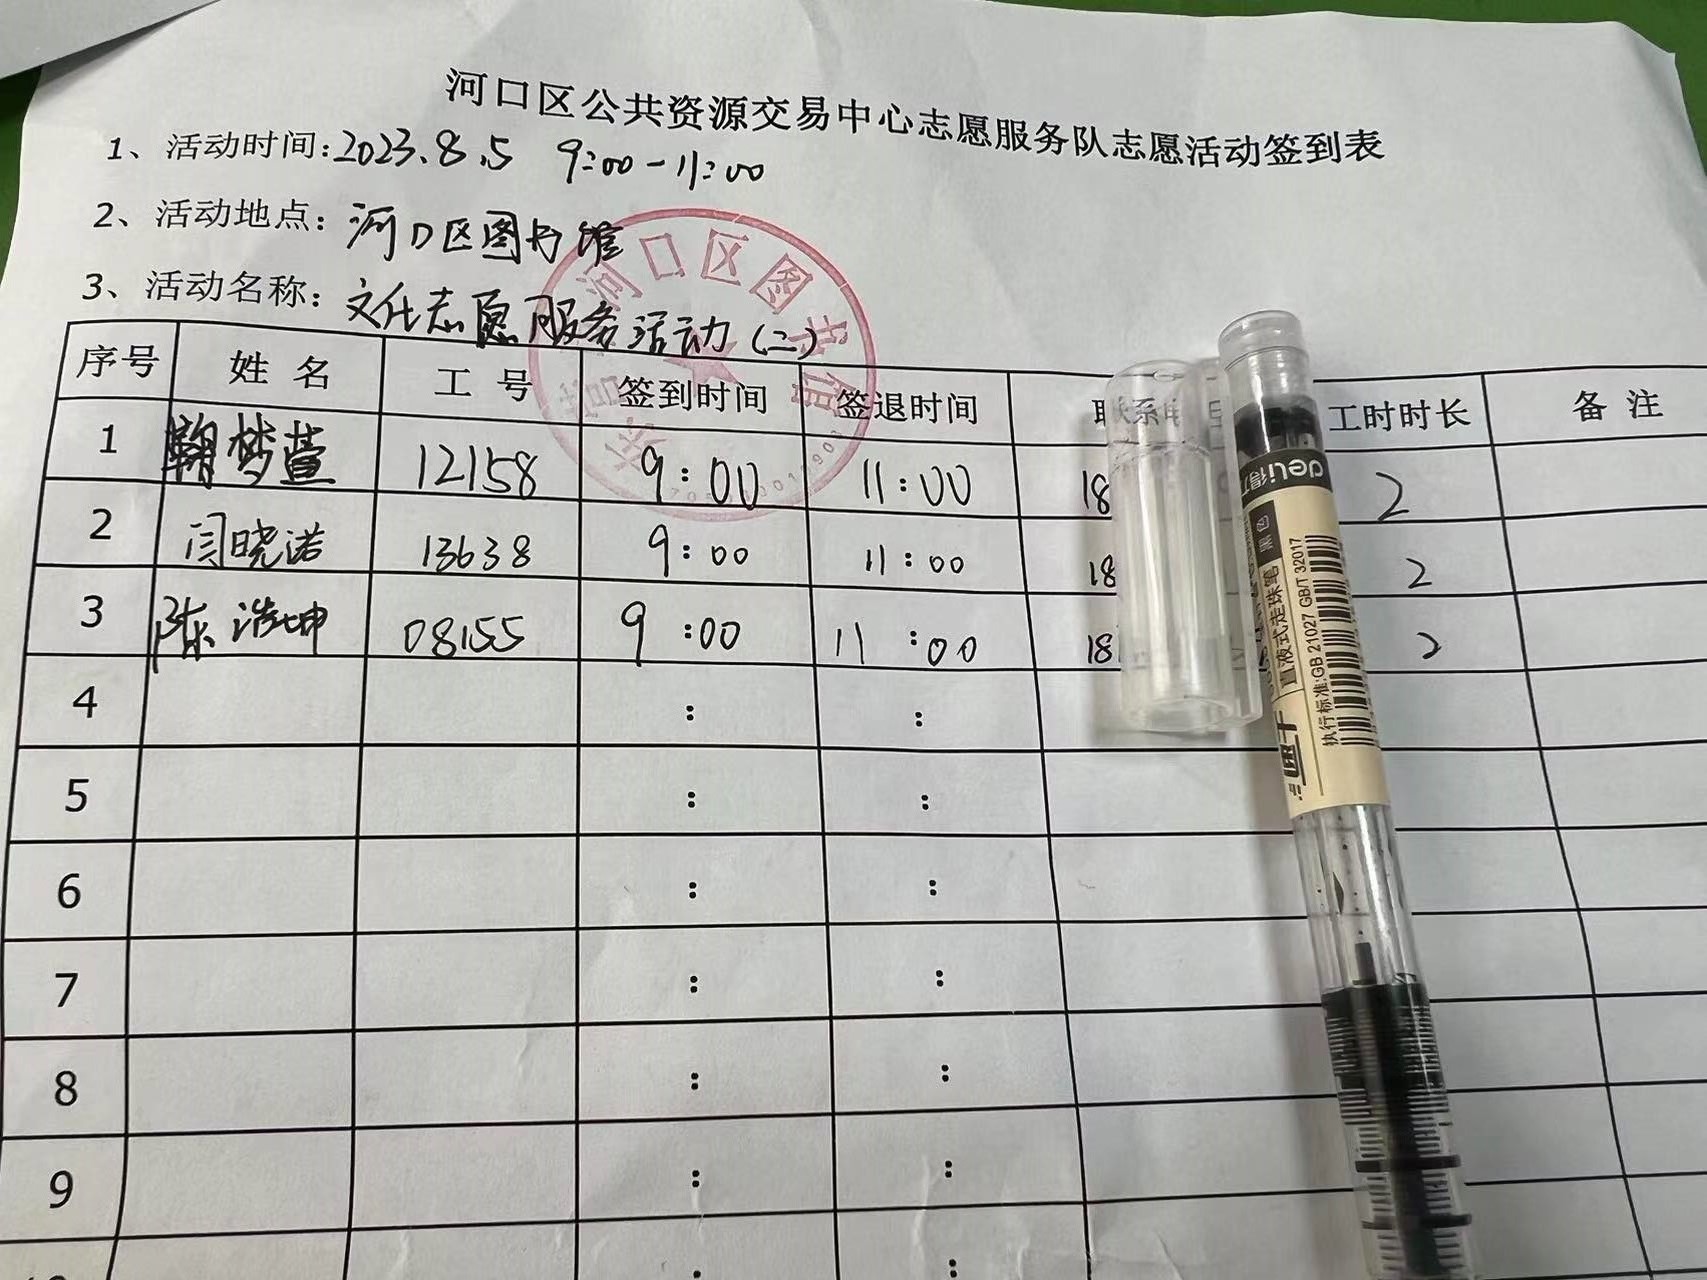 河口区公共资源交易中心志愿服务队志愿活动签到表
1、活动时间:2023.8.5 9:00-11:00
2、活动地点: 河口区图书馆
3、活动名称: 文化志愿服务活动(二)
序号 姓名 工号 签到时间 签退时间 联系电 工时时长 备注
1 鞠梦萱 12158 9:00 11:00 18 2
2 闫晓诺 13638 9:00 11:00 18 2
3 陈浩坤 08155 9:00 11:00 18 2
4 : :
5 : :
6 : :
7 : :
8 : :
9 : :
: :
河口区图书馆
deli得力
黑色
直液式走珠笔
执行标准:GB 21027 GB/T 32017
速干